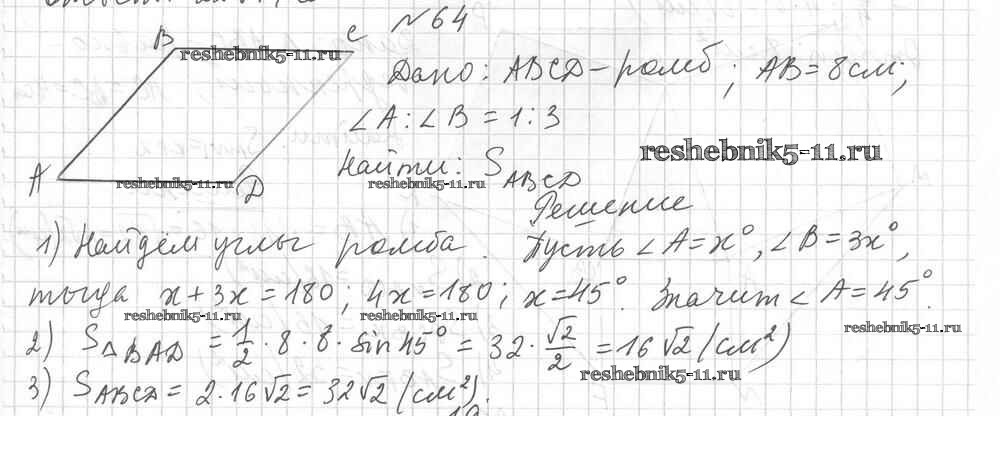 №64
B
C
reshebnik5-11.ru
Дано: ABCD - ромб; AB = 8 см;
∠A : ∠B = 1 : 3
reshebnik5-11.ru
Найти: S ABCD
reshebnik5-11.ru
A
reshebnik5-11.ru
D
Решение
1) Найдём углы ромба. Пусть ∠A = x°, ∠B = 3x°,
тогда x + 3x = 180; 4x = 180; x = 45°. Значит ∠A = 45°.
reshebnik5-11.ru
reshebnik5-11.ru
reshebnik5-11.ru
2) S△BAD = 1/2 · 8 · 8 · sin 45° = 32 · √2/2 = 16√2 (см²)
reshebnik5-11.ru
3) SABCD = 2 · 16√2 = 32√2 (см²).